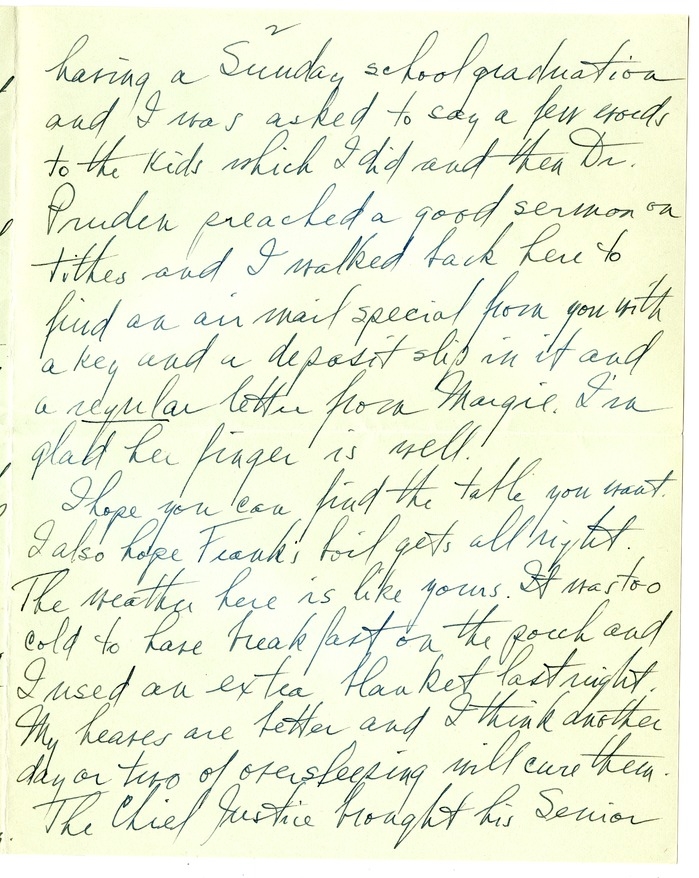 2
having a Sunday school graduation
and I was asked to say a few words
to the kids which I did and then Dr.
Pruden preached a good sermon on
tithes and I walked back here to
find an air mail special from you with
a key and a deposit slip in it and
a regular letter from Margie. I'm
glad her finger is well.
I hope you can find the table you want.
I also hope Frank's boil gets all right.
The weather here is like yours. It was too
cold to have breakfast on the porch and
I used an extra blanket last night.
My heaves are better and I think another
day or two of oversleeping will cure them.
The Chief Justice brought his Senior